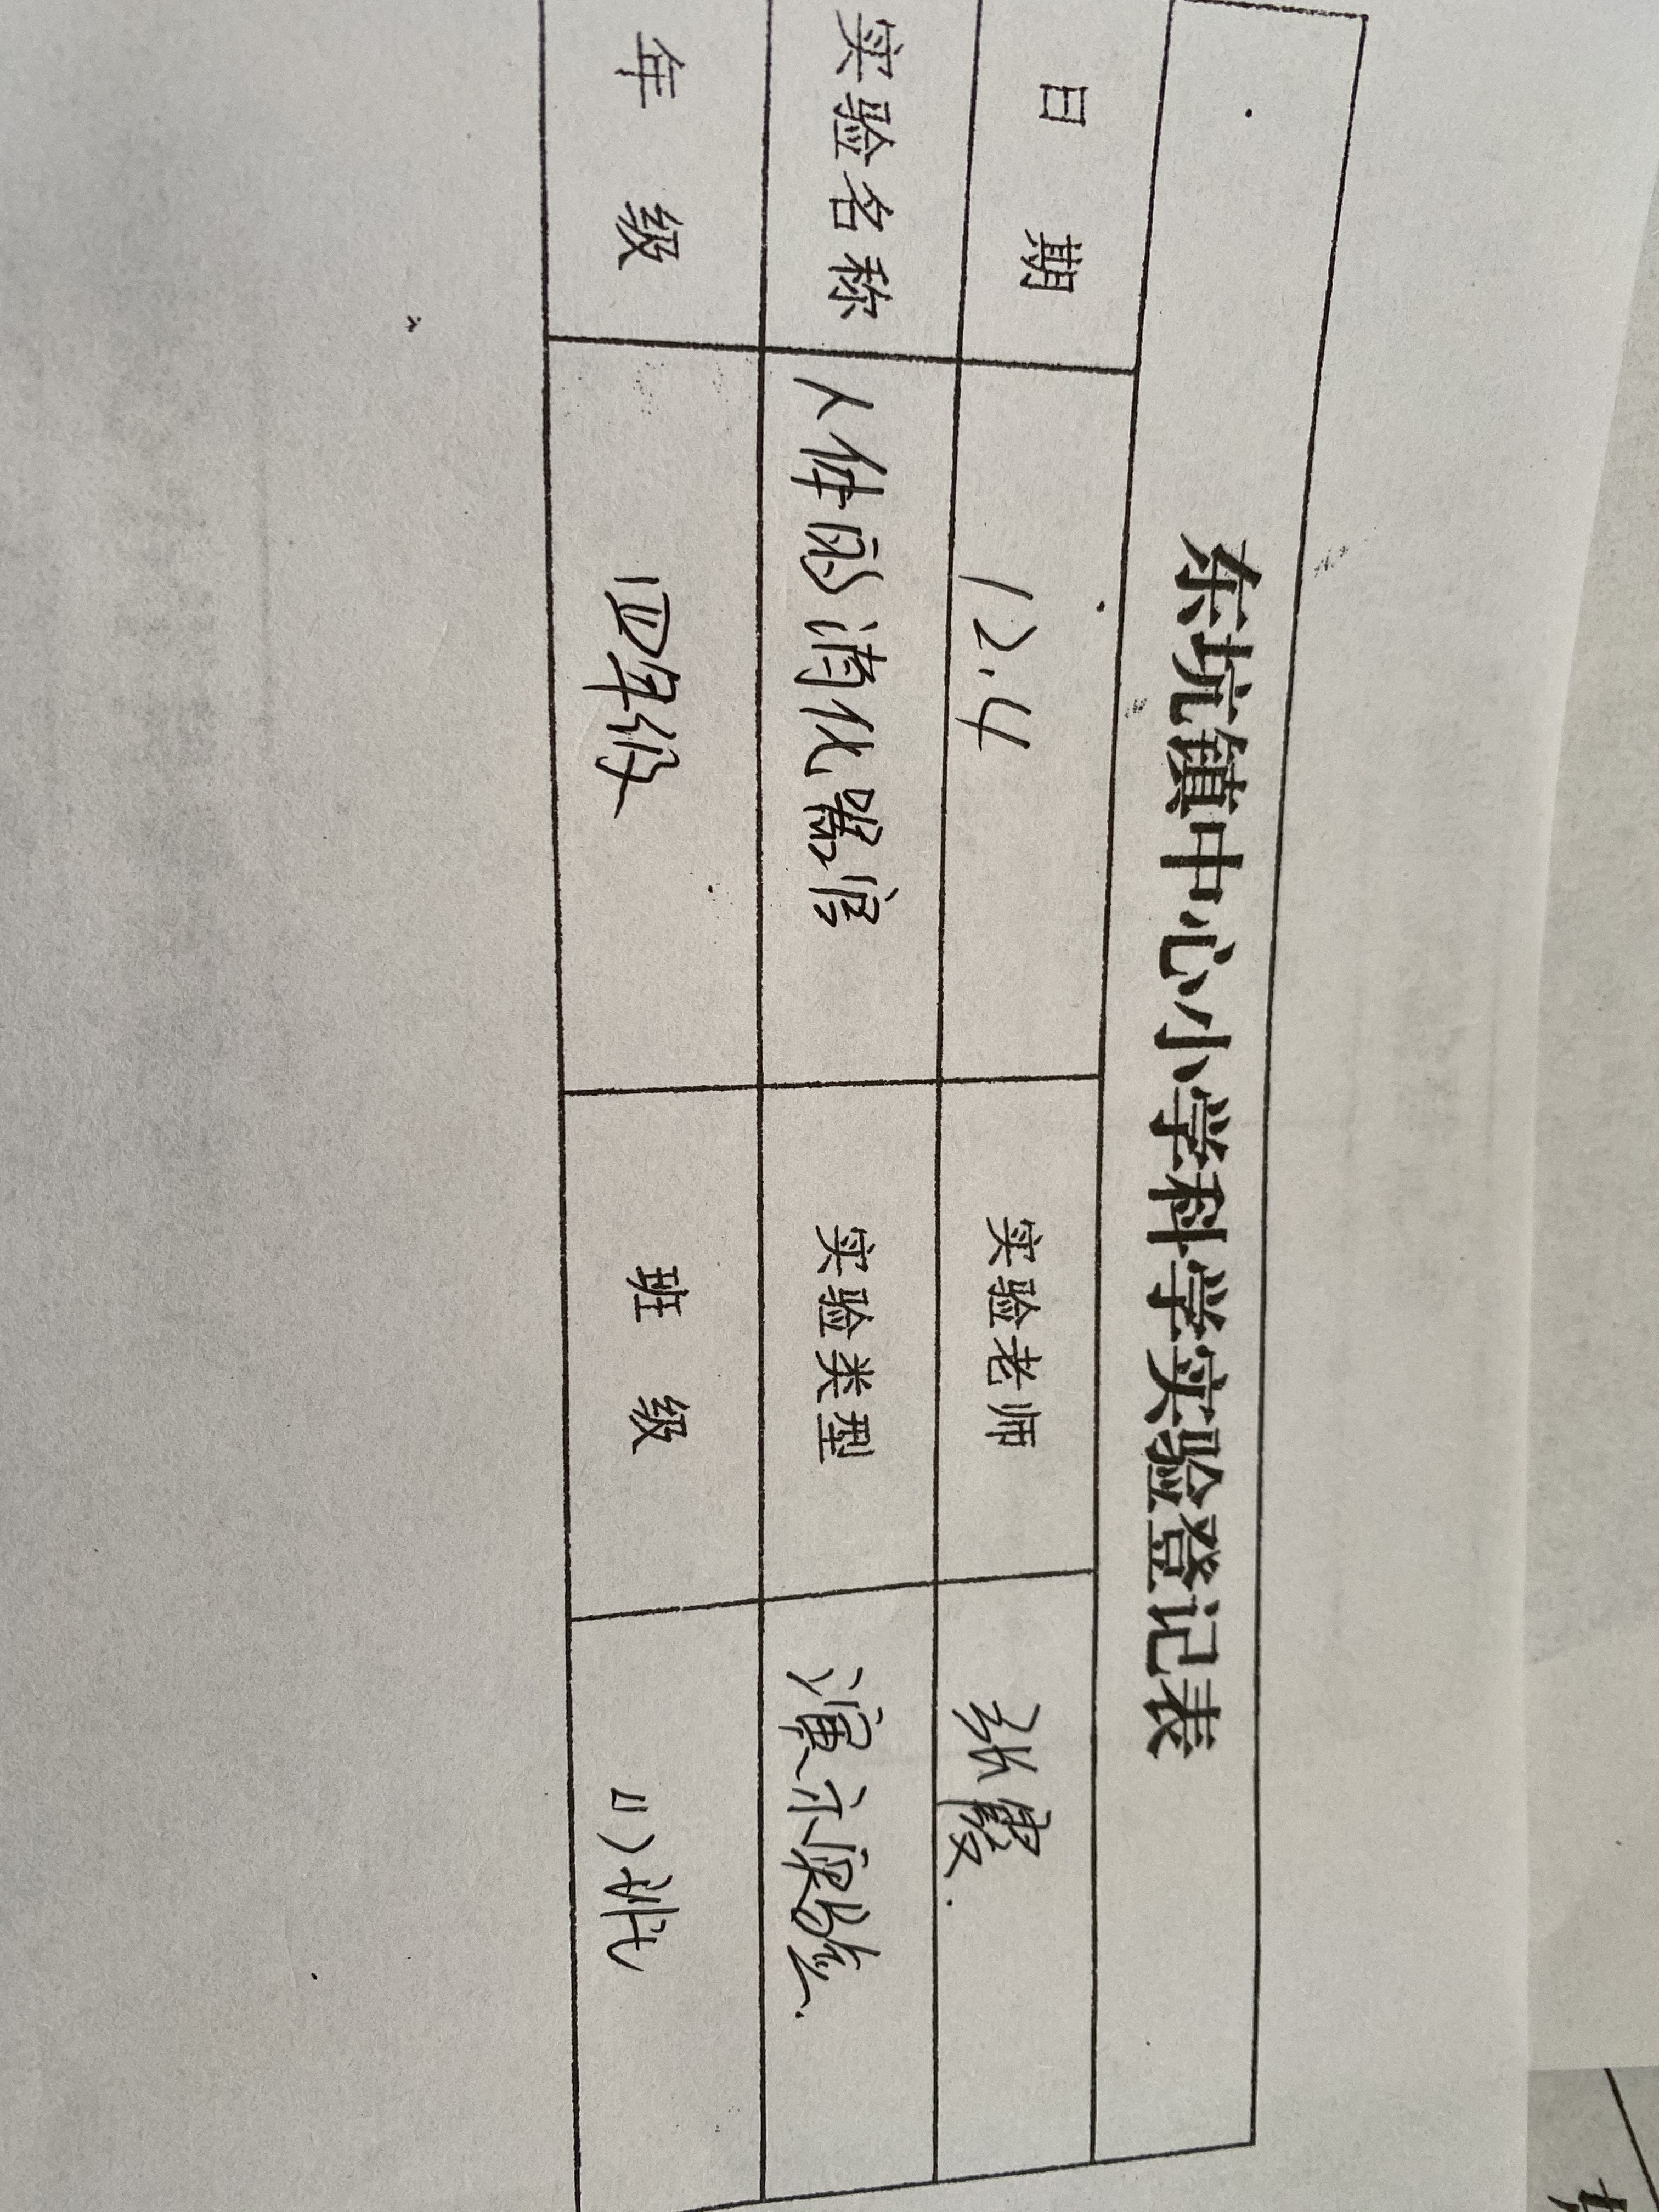 东坑镇中心小学科学实验登记表
日 期 12.4 实验老师 张霞.
实验名称 人体的消化器官 实验类型 演示实验.
年 级 四年级 班 级 (1)班